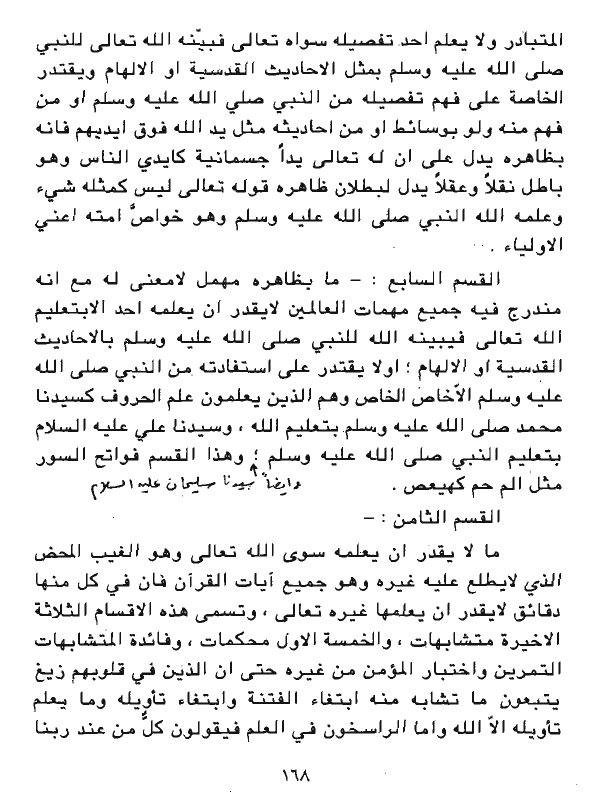 المتبادر ولا يعلم احد تفصيله سواه تعالى فبيّنه الله تعالى للنبي
صلى الله عليه وسلم بمثل الاحاديث القدسية او الالهام ويقتدر
الخاصة على فهم تفصيله من النبي صلي الله عليه وسلم او من
فهم منه ولو بوسائط او من احاديثه مثل يد الله فوق ايديهم فانه
بظاهره يدل على ان له تعالى يداً جسمانية كايدي الناس وهو
باطل نقلاً وعقلاً يدل لبطلان ظاهره قوله تعالى ليس كمثله شيء
وعلمه الله النبي صلى الله عليه وسلم وهو خواصَّ امته اعني
الاولياء .
القسم السابع : – ما بظاهره مهمل لامعنى له مع انه
مندرج فيه جميع مهمات العالمين لايقدر ان يعلمه احد الابتعليم
الله تعالى فيبينه الله للنبي صلى الله عليه وسلم بالاحاديث
القدسية او الالهام ؛ اولا يقتدر على استفادته من النبي صلى الله
عليه وسلم الاّخاص الخاص وهم الذين يعلمون علم الحروف كسيدنا
محمد صلى الله عليه وسلم بتعليم الله ، وسيدنا علي عليه السلام
بتعليم النبي صلى الله عليه وسلم ؛ وهذا القسم فواتح السور
مثل الم حم كهيعص . وايضاً سيدنا سليمان عليه السلام
القسم الثامن : –
ما لا يقدر ان يعلمه سوى الله تعالى وهو الغيب المحض
الذي لايطلع عليه غيره وهو جميع آيات القرآن فان في كل منها
دقائق لايقدر ان يعلمها غيره تعالى ، وتسمى هذه الاقسام الثلاثة
الاخيرة متشابهات ، والخمسة الاول محكمات ، وفائدة المتشابهات
التمرين واختبار المؤمن من غيره حتى ان الذين في قلوبهم زيغ
يتبعون ما تشابه منه ابتغاء الفتنة وابتغاء تأويله وما يعلم
تأويله الاّ الله واما الراسخون في العلم فيقولون كلٌّ من عند ربنا
١٦٨